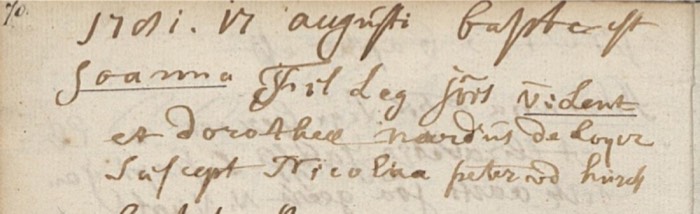 1781. 17 augusti baptz est
Joanna Fil Leg jois vident
et dorothee nardus de loyer
Suscept Nicolaa peter